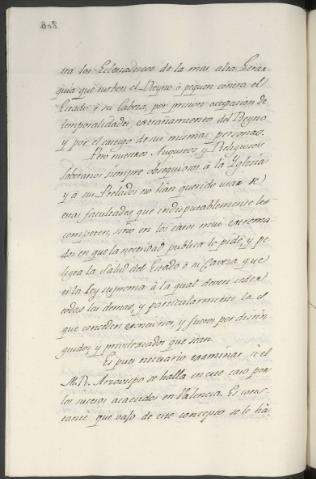 tra los Eclesiasticos de la mas alta Gerar
quia que turben el Reyno ó pequen contra el
Estado ó su Cabeza, por prision ocupacion de
temporalidades, extrañamiento del Reyno
y por el castigo de sus mismas personas.
Pero nuestros Augustos y Religiosos
Soberanos siempre obsequiosos á la Iglesia
y á sus Prelados no han querido usar de
estas facultades que indisputablemente les
competen, sino en los casos mas extrema
dos en que la necesidad publica lo pide, y pe
ligra la salud del Estado ó su Cabeza, que
es la Ley suprema á la qual deven ceder
todas las demas, y particularmente las
que conceden esenciones, y fueros por distin
guidos, y privilegiados que sean.
Es pues necesario examinar si el
M. R. Arzobispo se halla en este caso por
los sucesos acaecidos en Valencia. Es cons
tante que vajo de este concepto se le ha